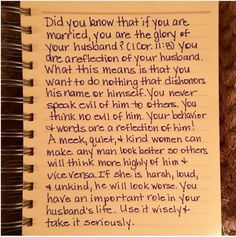 Did you know that if you are
married, you are the glory of
your husband? (1 Cor. 11:8) You
are a reflection of your husband.
What this means is that you
want to do nothing that dishonors
his name or himself. You never
speak evil of him to others. You
think no evil of him. Your behavior
& words are a reflection of him!
A meek, quiet, & kind women can
make any man look better so others
will think more highly of him &
vice versa. If she is harsh, loud,
& unkind, he will look worse. You
have an important role in your
husband's life. Use it wisely &
take it seriously.